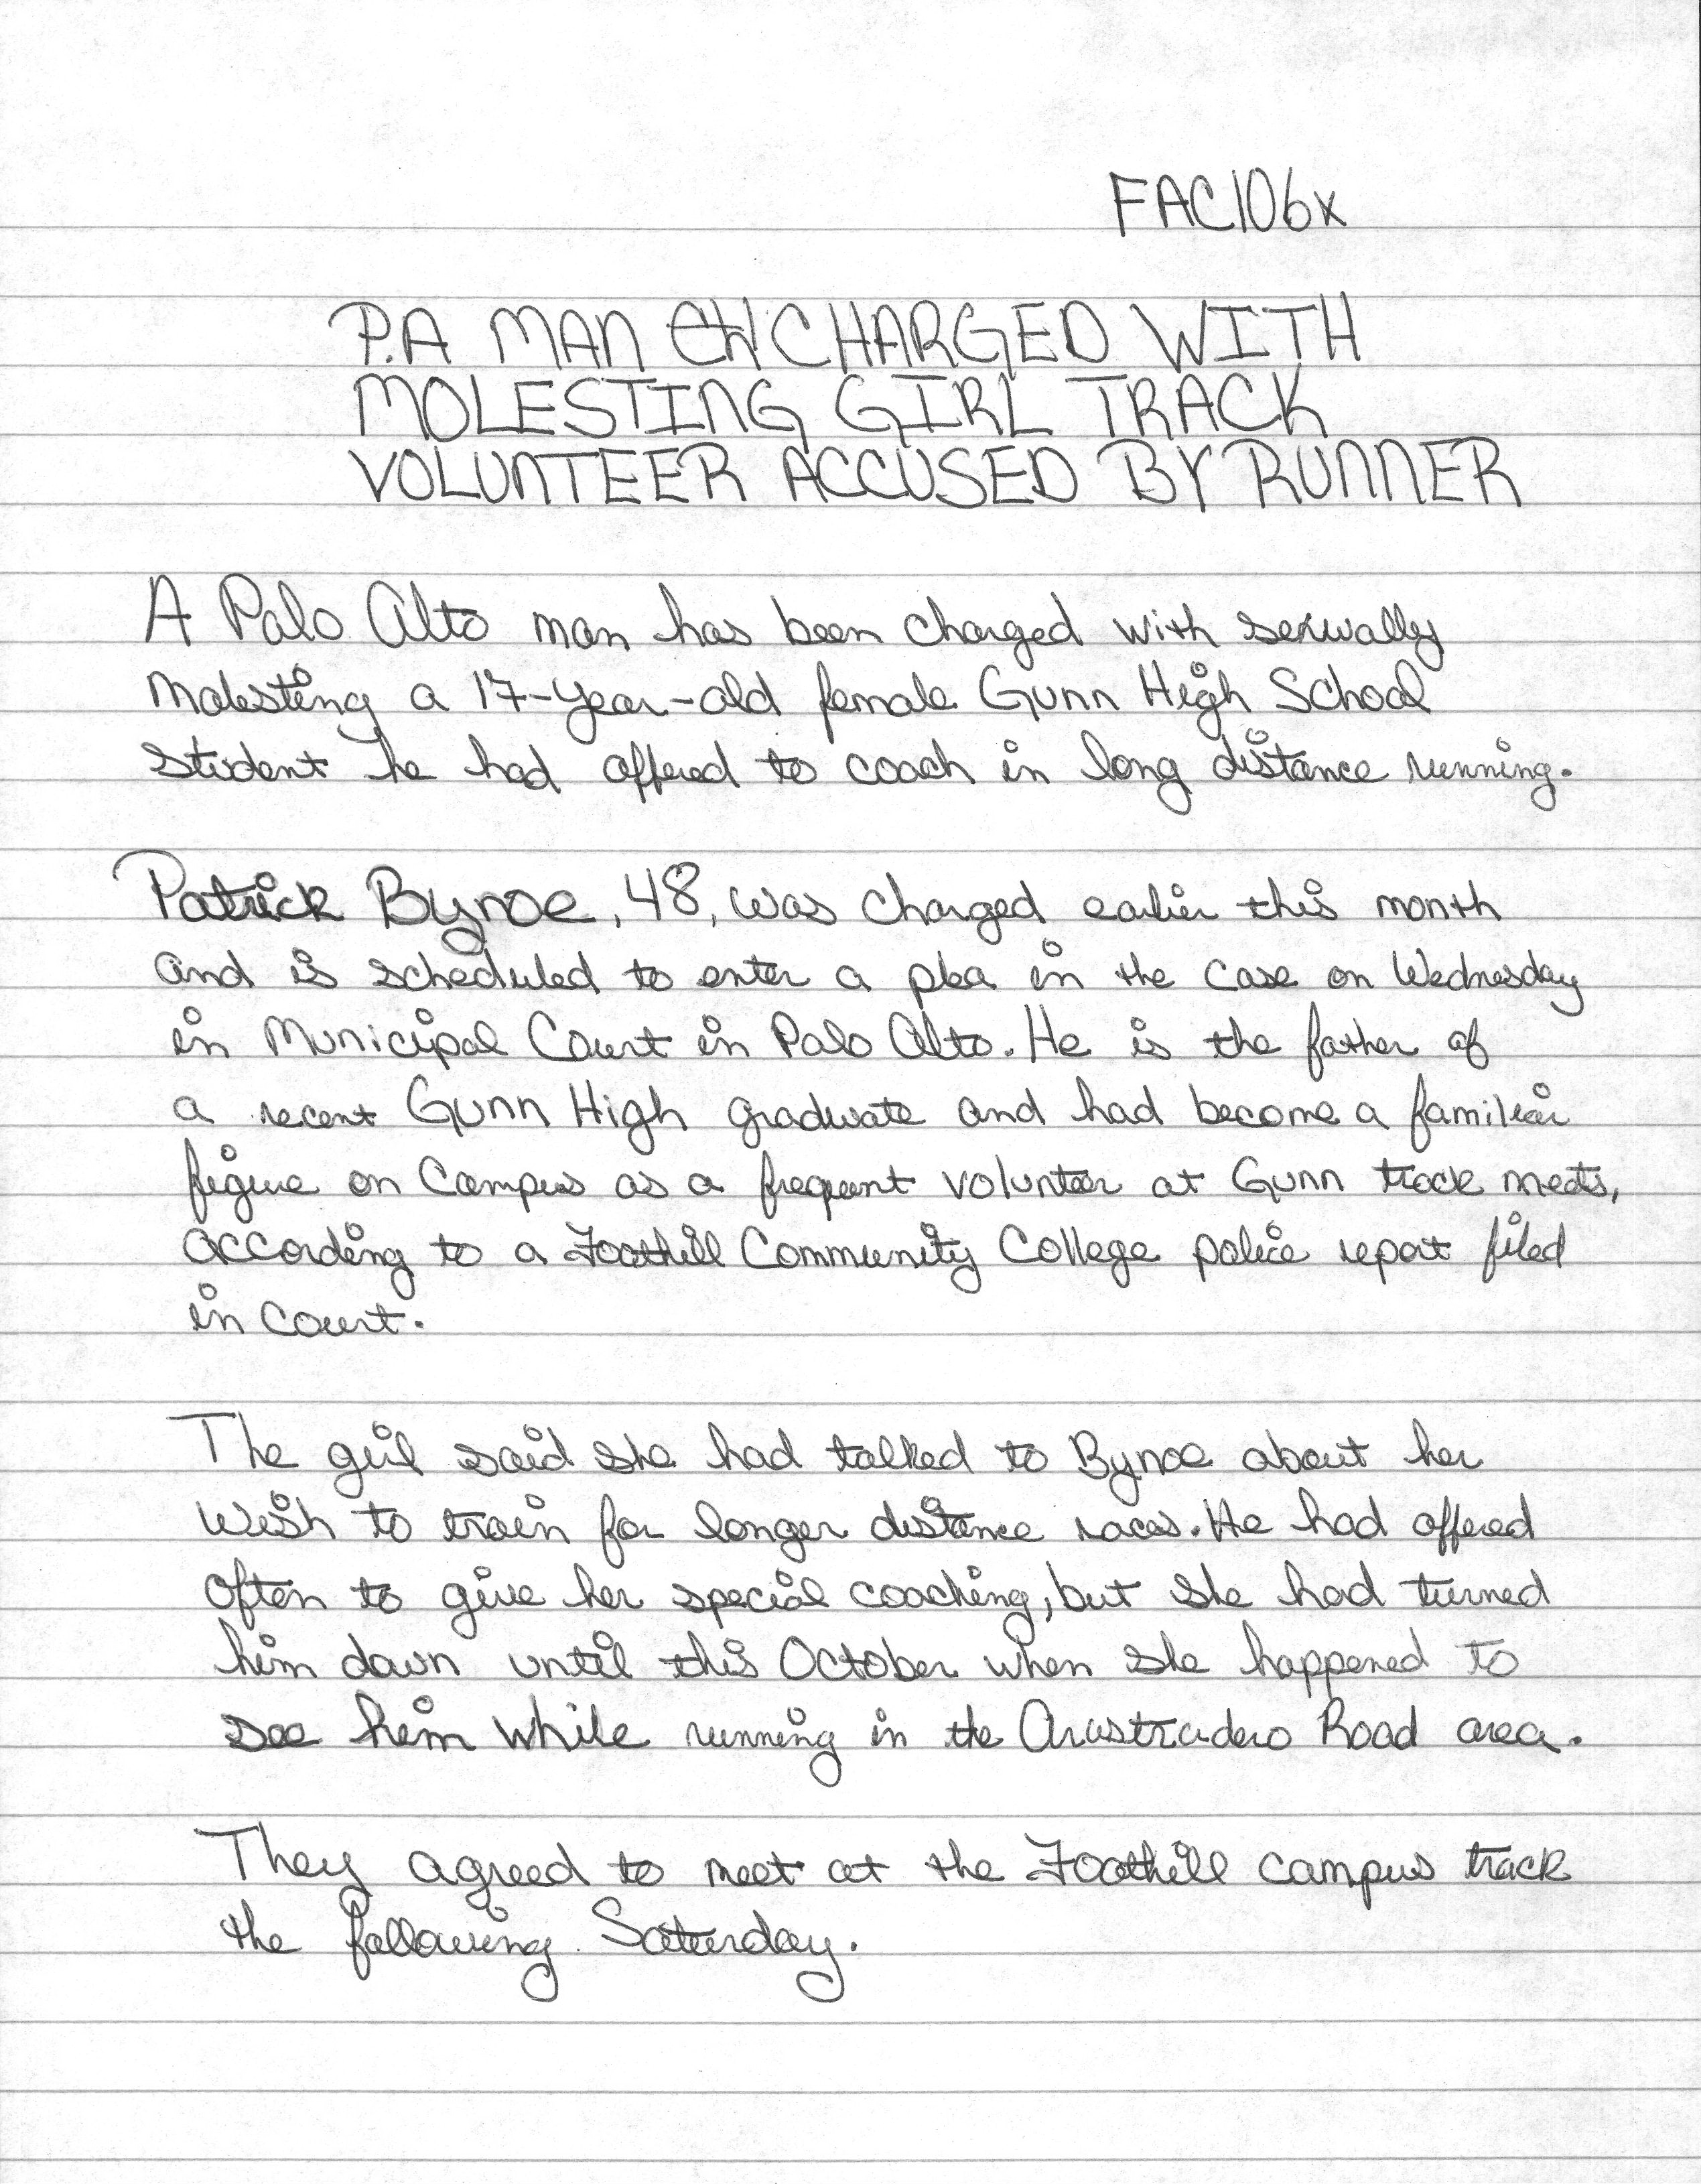 FAC106x
P.A MAN CHARGED WITH
MOLESTING GIRL TRACK
VOLUNTEER ACCUSED BY RUNNER
A Palo Alto man has been charged with sexually
molesting a 17-year-old female Gunn High School
student he had offered to coach in long distance running.
Patrick Bynoe, 48, was charged earlier this month
and is scheduled to enter a plea in the case on Wednesday
in Municipal Court in Palo Alto. He is the father of
a recent Gunn High graduate and had become a familiar
figure on campus as a frequent volunteer at Gunn track meets,
according to a Foothill Community College police report filed
in court.
The girl said she had talked to Bynoe about her
wish to train for longer distance races. He had offered
often to give her special coaching, but she had turned
him down until this October when she happened to
see him while running in the Arastradero Road area.
They agreed to meet at the Foothill campus track
the following Saturday.